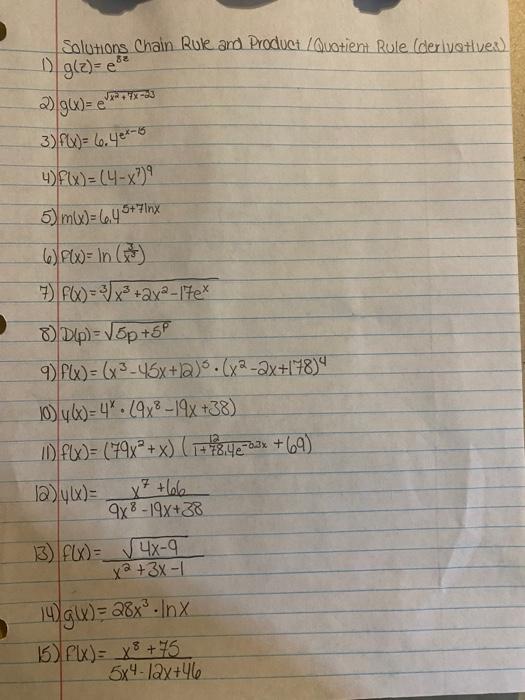 Solutions Chain Rule and Product / Quotient Rule (derivatives)
1) g(z) = e^{8z}
2) g(x) = e^{√(x²+7x-23)}
3) f(x) = 6.4^{e^x-15}
4) f(x) = (4-x⁷)⁹
5) m(x) = 6.4^{5+7lnx}
6) f(x) = ln (3/x⁵)
7) f(x) = ∛(x³+2x²-17e^x)
8) D(p) = √(5p+5^p)
9) f(x) = (x³-45x+12)⁵ · (x²-2x+178)⁴
10) y(x) = 4^x · (9x⁸-19x+38)
11) f(x) = (79x²+x) (12/(1+78.4e^{-0.3x}) + 69)
12) y(x) = (x⁷+66)/(9x⁸-19x+38)
13) f(x) = √(4x-9)/(x²+3x-1)
14) g(x) = 28x³ · ln x
15) f(x) = (x⁸+75)/(5x⁴-12x+46)